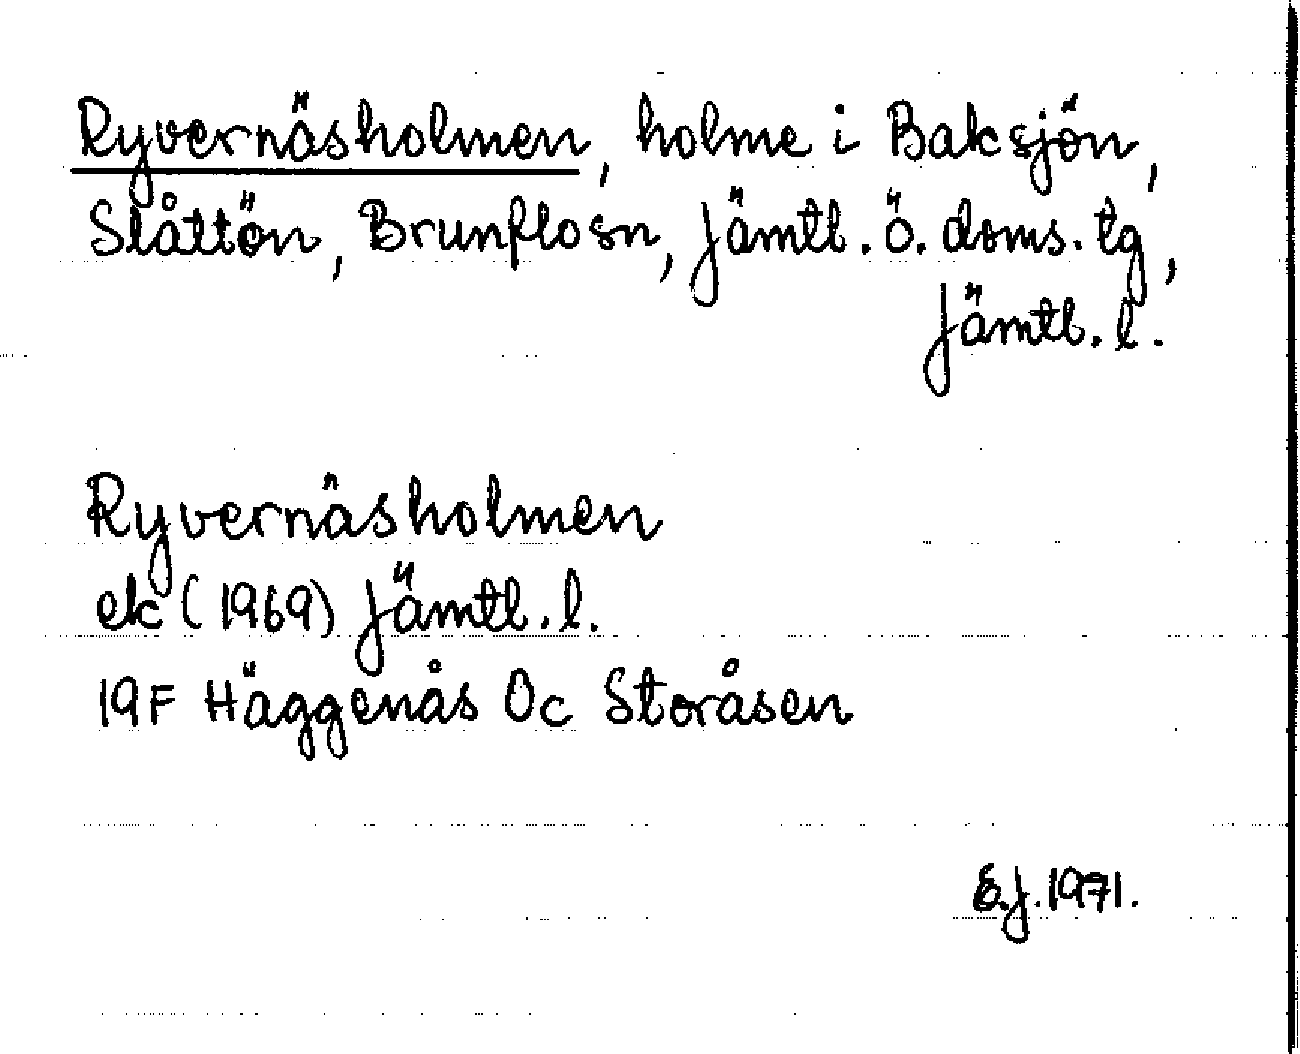 Ryvernäsholmen, holme i Baksjön,
Slåttön, Brunflo sn, Jämtl. ö. doms. tg,
Jämtl. l.
Ryvernäsholmen
ek (1969) Jämtl. l.
19F Häggenås 0c Storåsen
E.J. 1971.